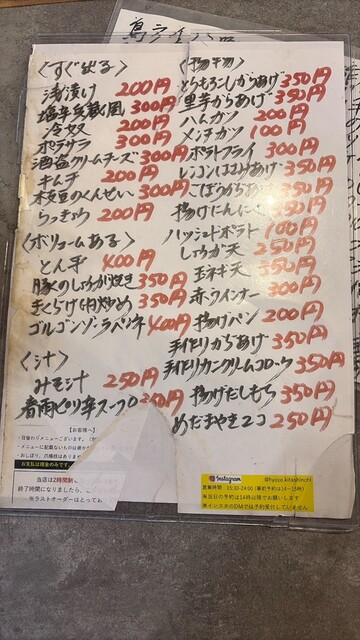 〈すぐ出る〉
浅漬け 200円
塩辛兵蔵風 300円
冷奴 200円
ポテサラ 300円
酒盗クリームチーズ 300円
キムチ 200円
枝豆のくんせい 300円
らっきょう 200円
〈ボリュームある〉
とん平 400円
豚のしょうが焼き 350円
きくらげ肉炒め 350円
ゴルゴンゾーラペンネ 400円
〈汁〉
みそ汁 250円
春雨ピリ辛スープ
〈揚げ物〉
とうもろこしからあげ 350円
里芋からあげ 350円
ハムカツ 200円
メンチカツ 100円
ポテトフライ 300円
レンコンはさみあげ 350円
ごぼうからあげ 350円
揚げにんにく 350円
ハッシュドポテト 100円
しょうが天 250円
玉ネギ天 350円
赤ウインナー 300円
揚げパン 200円
手作りからあげ 350円
手作りカニクリームコロッケ 350円
揚げだしもち 350円
めだまやき2コ 250円
【お客様へ】
・日替わりメニューございます。
・メニューに記載ないものは
・おしぼり、爪楊枝は
お支払は現金のみです。
当店は2時間制
終了時間になりましたら、
※ラストオーダーはとってお
Instagram @hyozo.kitashinchi
営業時間 15:30-24:00 (事前予約は14〜15時)
※当日の予約は14時以降でお願いします
※インスタのDMでは予約受付していません